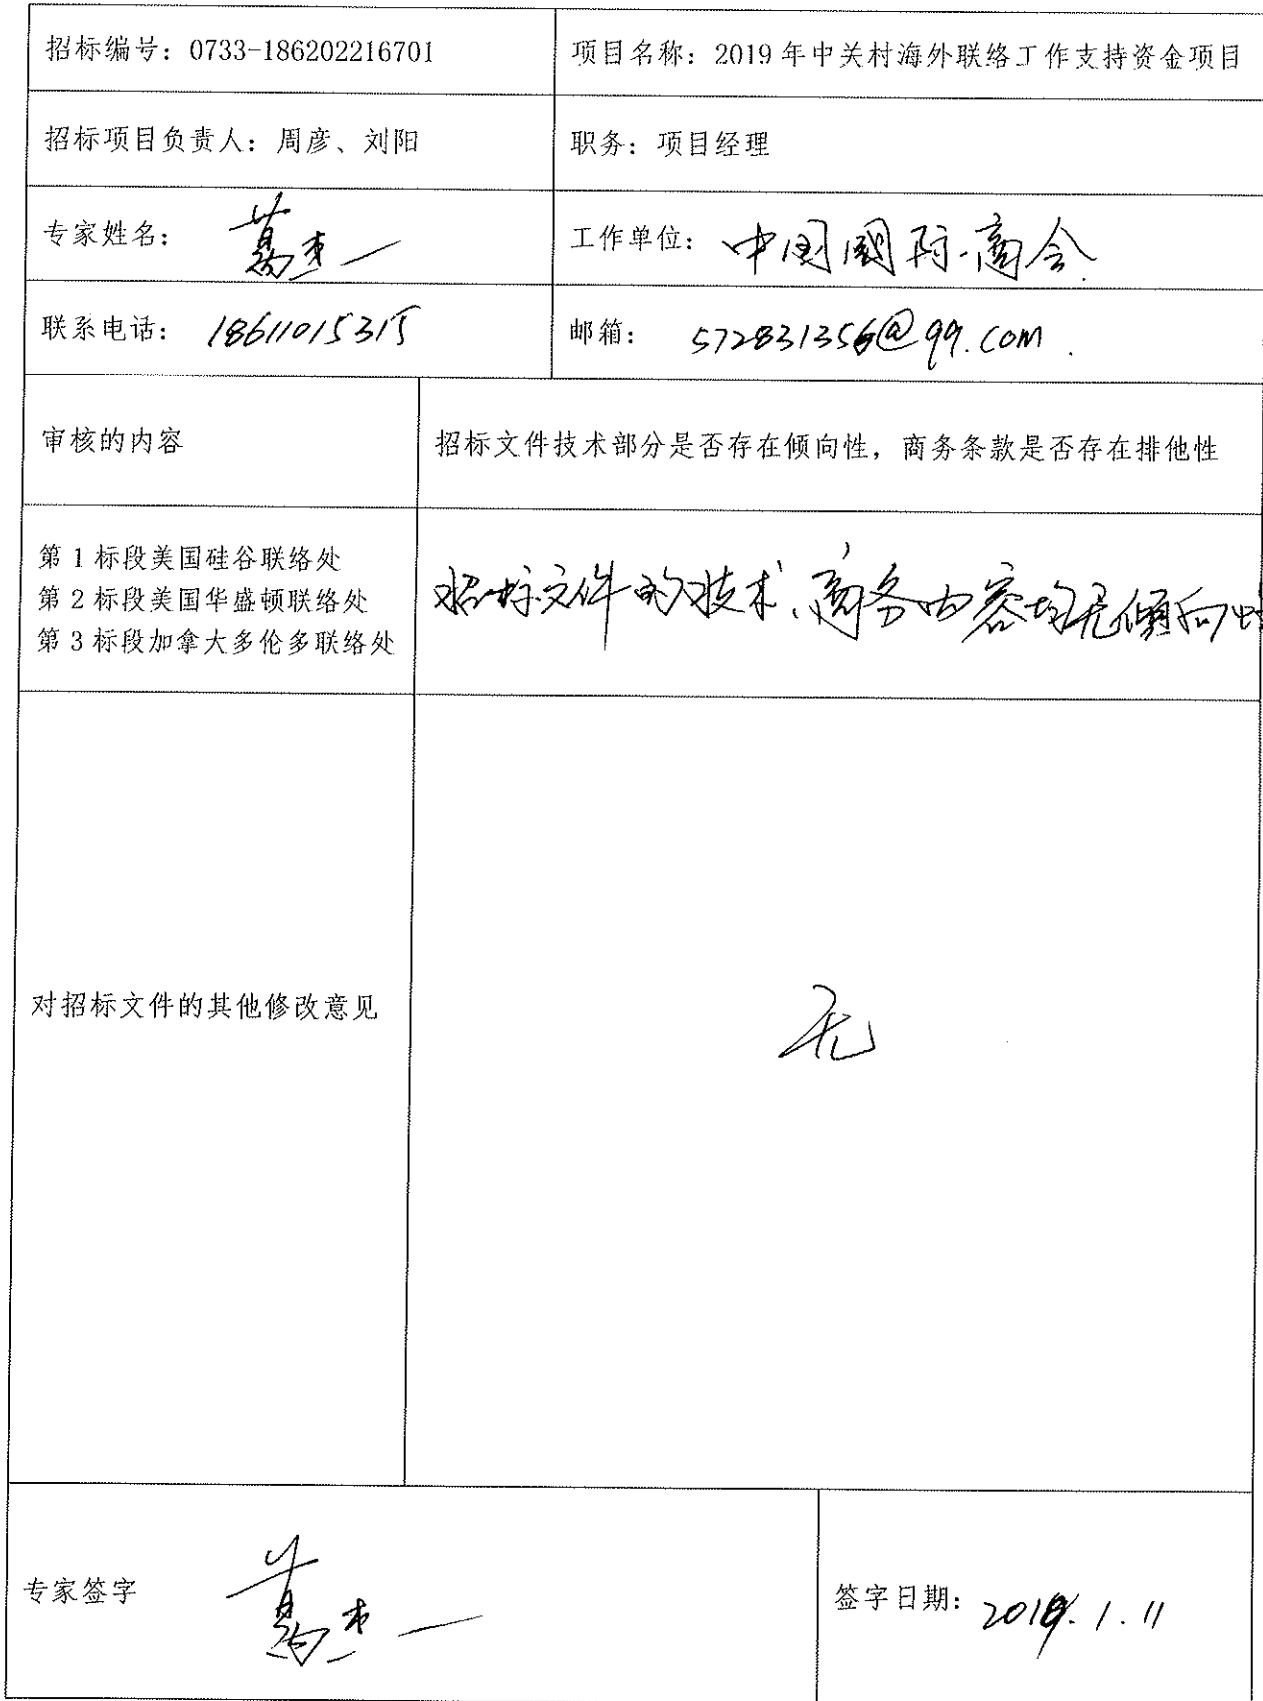 招标编号：0733-186202216701
项目名称：2019年中关村海外联络工作支持资金项目
招标项目负责人：周彦、刘阳
职务：项目经理
专家姓名：葛杰一
工作单位：中国国际商会
联系电话：18611015315
邮箱：572831356@qq.com
审核的内容
招标文件技术部分是否存在倾向性，商务条款是否存在排他性
第1标段美国硅谷联络处
第2标段美国华盛顿联络处
第3标段加拿大多伦多联络处
招标文件的技术、商务内容均无倾向性
对招标文件的其他修改意见
无
专家签字 葛杰一
签字日期：2019.1.11